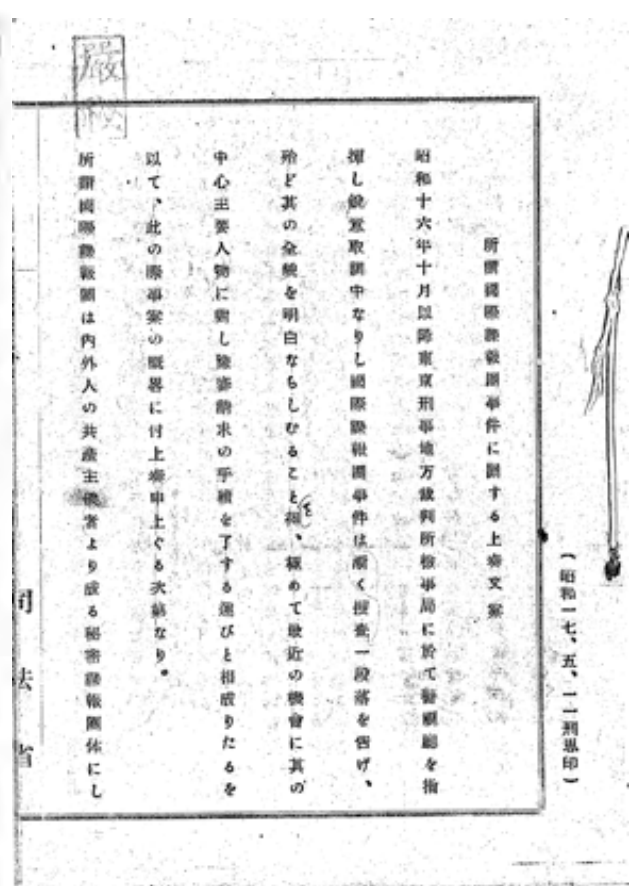 厳秘
(昭和一七、五、一一刑思印)
所謂國際諜報團事件に關する上奏文案
昭和十六年十月以降東京刑事地方裁判所檢事局に於て警視廳を指
揮し鋭意取調中なりし國際諜報團事件は漸く捜査一段落を告げ、
殆ど其の全貌を明白ならしむることを得、極めて最近の機會に其の
中心主要人物に對し豫審請求の手續を了する運びと相成りたるを
以て、此の際事案の概畧に付上奏申上ぐる次第なり。
所謂國際諜報團は内外人の共産主義者より成る秘密諜報團体にし
司法省